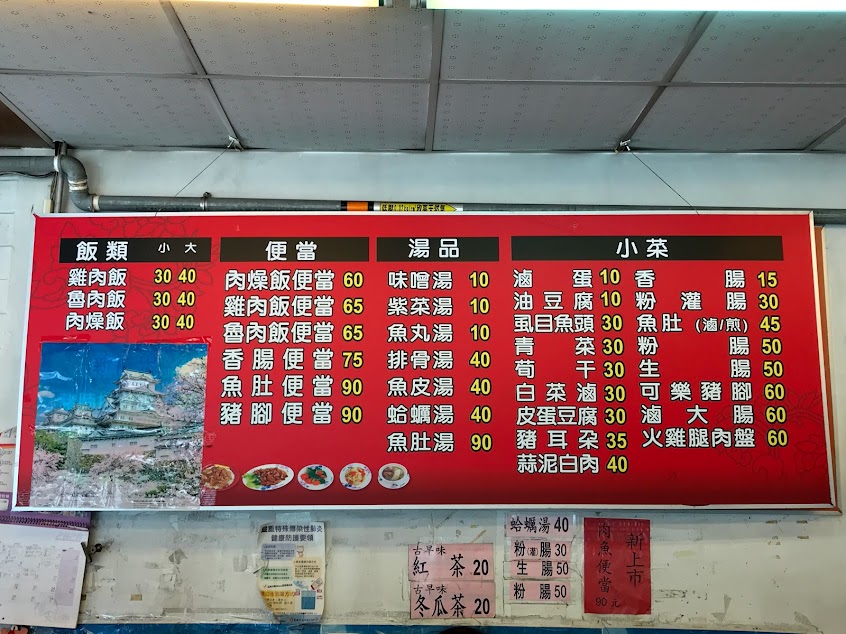 飯類 小 大
雞肉飯 30 40
魯肉飯 30 40
肉燥飯 30 40
便當
肉燥飯便當 60
雞肉飯便當 65
魯肉飯便當 65
香腸便當 75
魚肚便當 90
豬腳便當 90
湯品
味噌湯 10
紫菜湯 10
魚丸湯 10
排骨湯 40
魚皮湯 40
蛤蠣湯 40
魚肚湯 90
小菜
滷蛋 10
油豆腐 10
虱目魚頭 30
青菜 30
筍干 30
白菜滷 30
皮蛋豆腐 30
豬耳朵 35
蒜泥白肉 40
香腸 15
粉灌腸 30
魚肚(滷/煎) 45
粉腸 50
生腸 50
可樂豬腳 60
滷大腸 60
火雞腿肉盤 60
健康防護要領
古早味
紅茶 20
古早味
冬瓜茶 20
蛤蠣湯 40
粉(灌)腸 30
生腸 50
粉腸 50
新上市
肉魚便當
90元